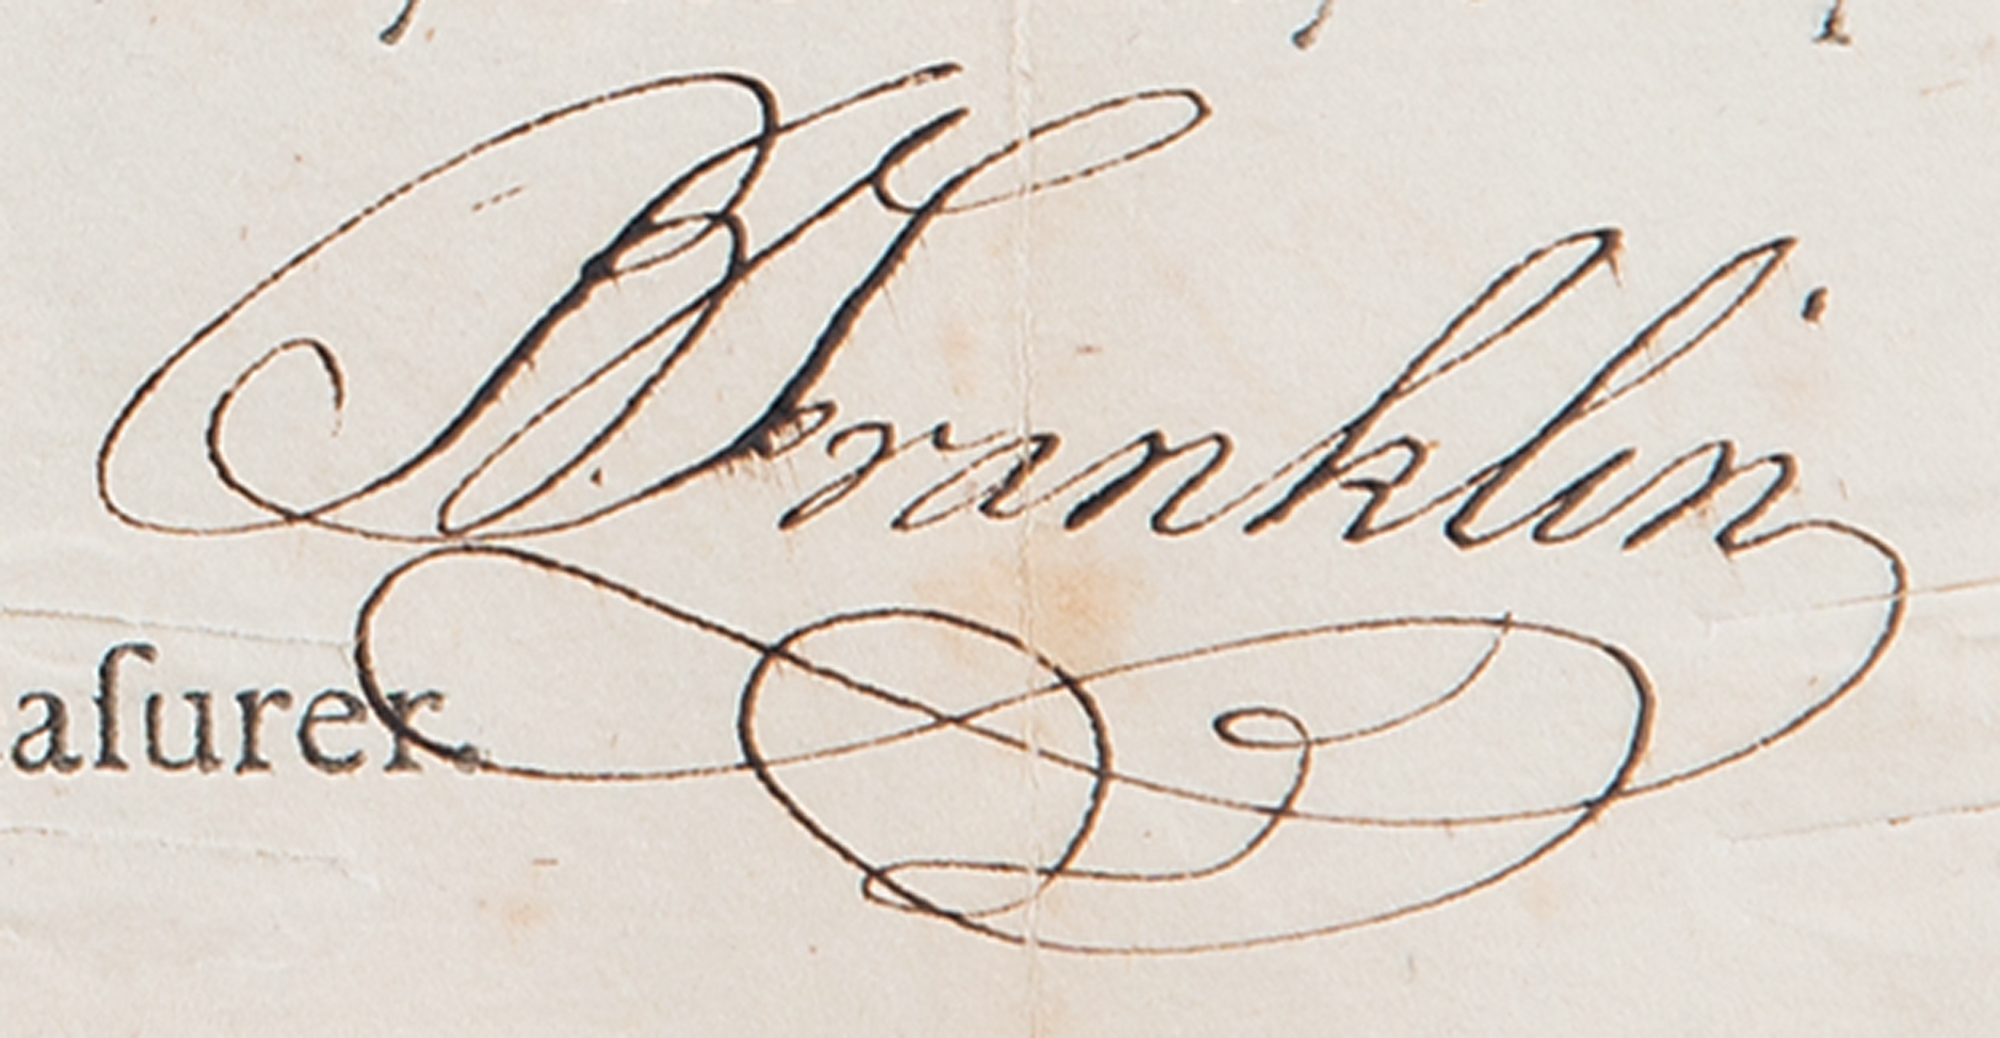 B Franklin
aſurer.